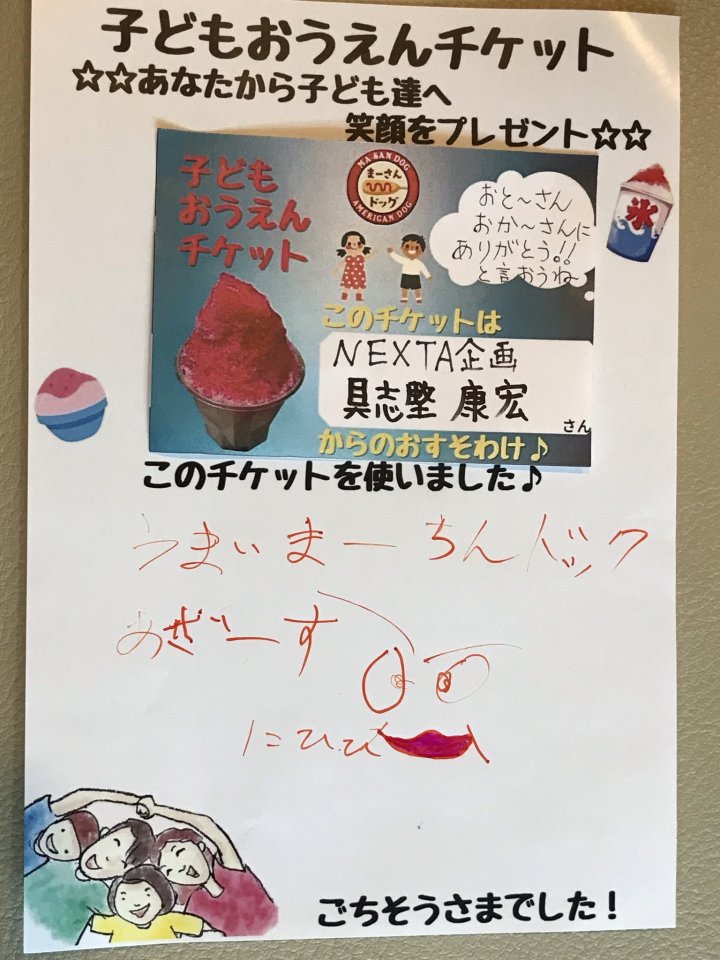 子どもおうえんチケット
☆☆あなたから子ども達へ
笑顔をプレゼント☆☆
子ども
おうえん
チケット
MA-SAN DOG
まーさん
ドッグ
AMERICAN DOG
おと〜さん
おか〜さんに
ありがとう!!
と言おうね〜
氷
このチケットは
NEXTA企画
具志堅 康宏
さん
からのおすそわけ♪
このチケットを使いました♪
うまいまーちんドック
あざいーす
にひひ
ごちそうさまでした！